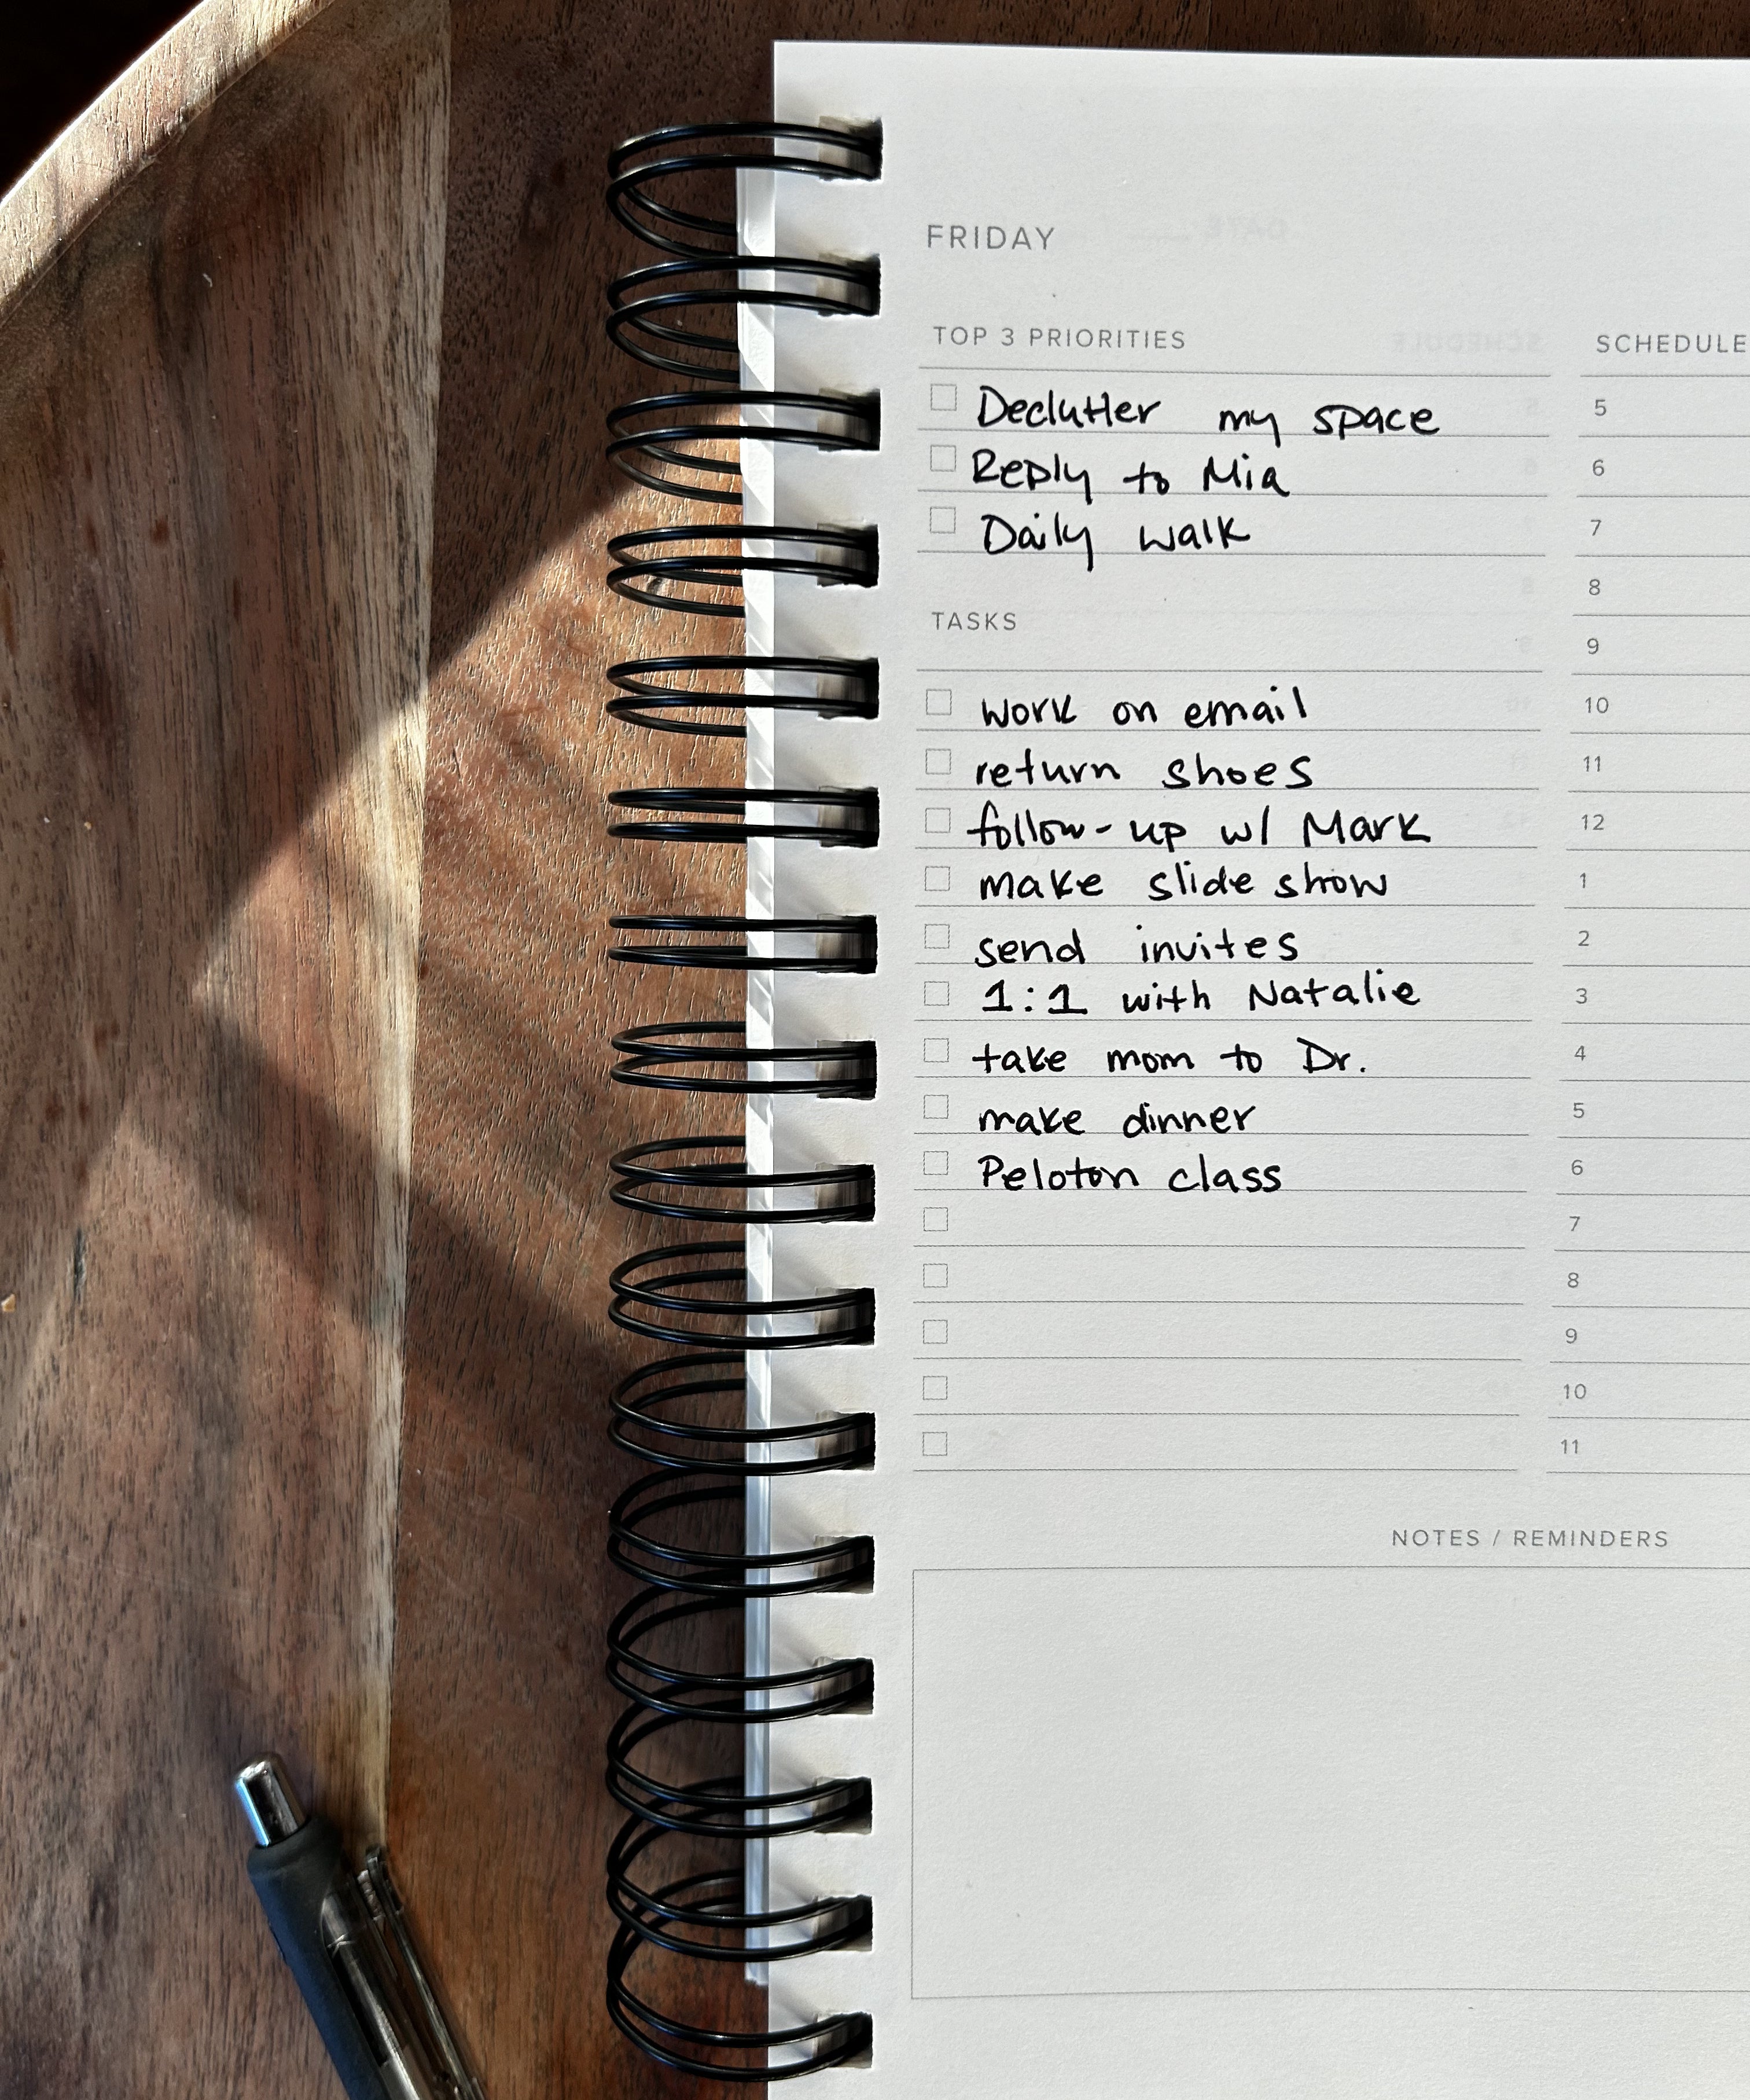 FRIDAY
TOP 3 PRIORITIES
Declutter my space
Reply to Mia
Daily walk
TASKS
work on email
return shoes
follow-up w/ Mark
make slide show
send invites
1:1 with Natalie
take mom to Dr.
make dinner
Peloton class
SCHEDULE
5
6
7
8
9
10
11
12
1
2
3
4
5
6
7
8
9
10
11
NOTES / REMINDERS